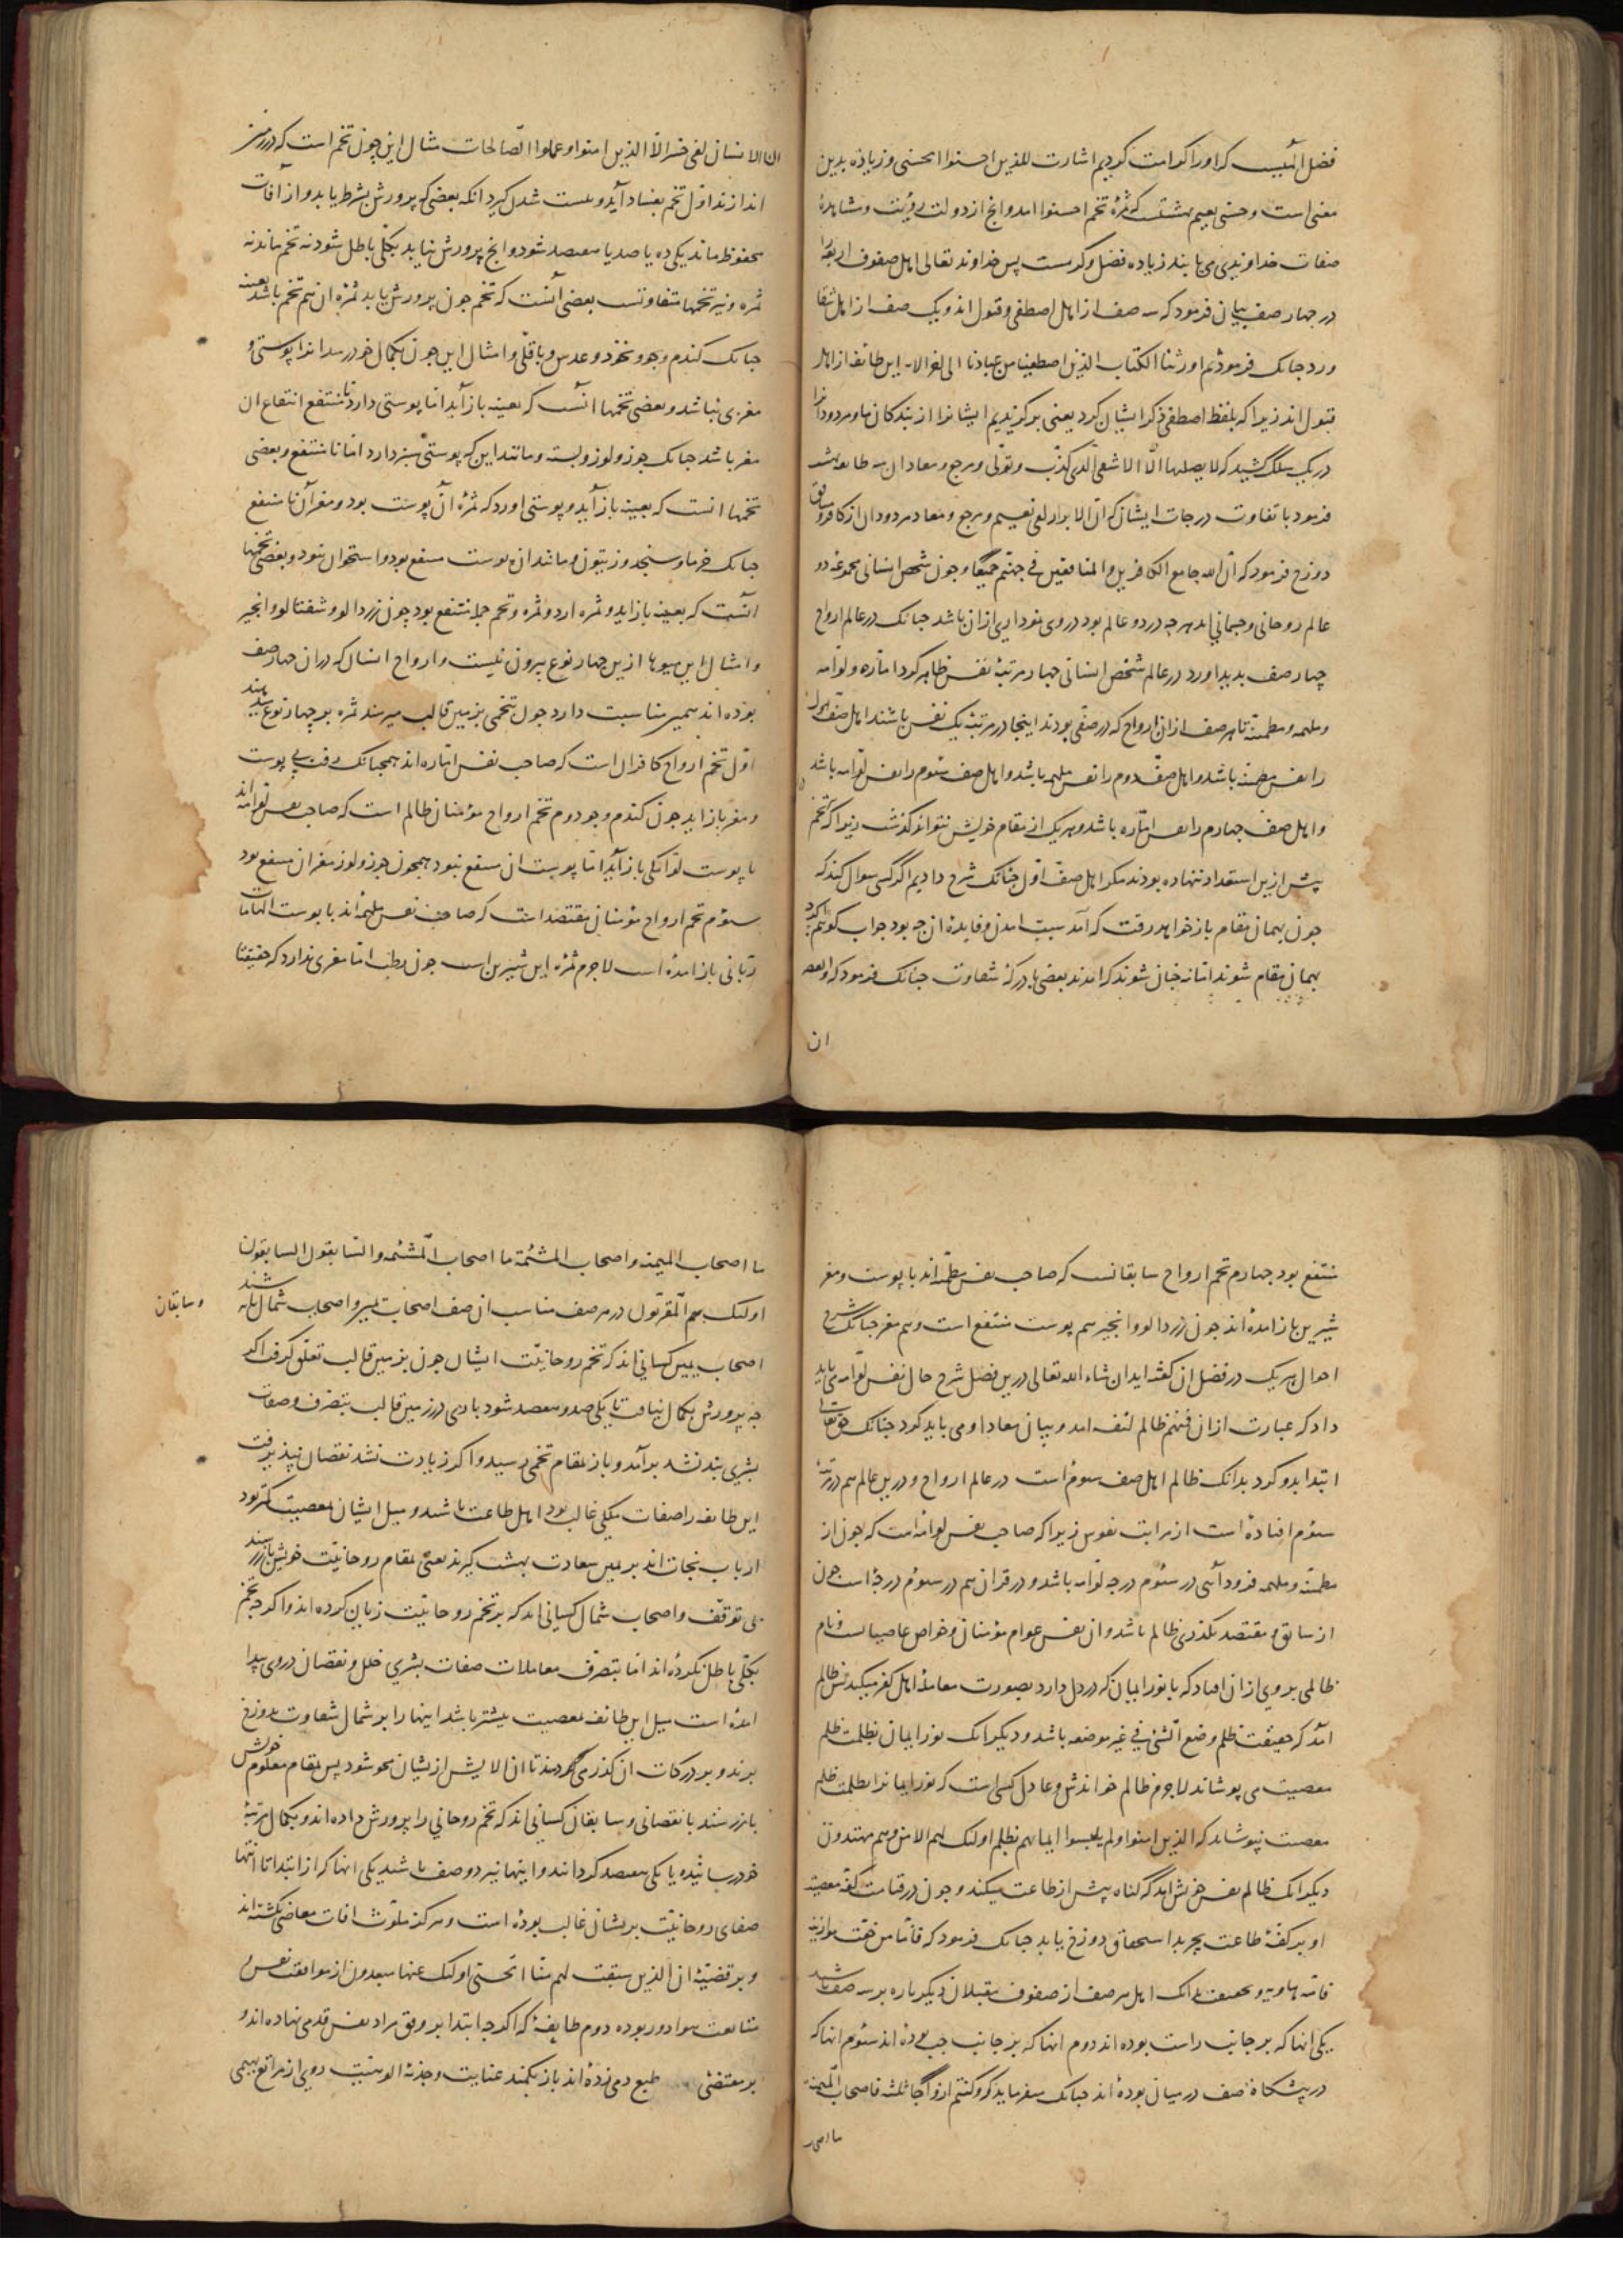 فضل انبیب که او را کرامت کردیم اشارت للذین احسنوا الحسنی و زیاده بدین
معنی است و حسنی نعیم بهشتست که ثمرهٔ تخم احسنوا امد و انچ از دولت رویت و مشاهدهٔ
صفات خداوندی می یابند زیاده فضل و کرمست پس خداوند تعالی اهل صفوف اربعه را
در چهار صف بیان فرمود که سه صف از اهل اصطفی و قبول اند و یک صف از اهل شقا
ورد جنانک فرمود ثم اورثنا الکتاب الذین اصطفینا من عبادنا الی اخر الایه این طائفه از اهل
قبول اند زیرا که بلفظ اصطفی ذکر ایشان کرد یعنی بر کزیدیم ایشانرا از بندکان ما و مردودانرا
در یک سلک کشید که لا یصلیها الا الاشقی الذی کذب و تولی و مرجع و معاد ان سه طایفه بهشت
فرمود با تفاوت درجات ایشان که ان الابرار لفی نعیم و مرجع و معاد مردودان از کافر و منافق
دوزخ فرمود که ان الله جامع الکافرین و المنافقین فی جهنم جمیعا و چون شخص انسانی مجموعهٔ دو
عالم روحانی و جسمانی امد هرچه در دو عالم بود در وی نموداری ازان باشد جنانک در عالم ارواح
چهار صف بدید اورد در عالم شخص انسانی جهار مرتبهٔ نفس ظاهر کرد اماره و لوامه
و ملهمه و مطمئنه تا هر صف ازان ارواح که در صفی بودند اینجا در مرتبهٔ یک نفس باشند اهل صف اول
را نفس مطمئنه باشد و اهل صف دوم را نفس ملهمه باشد و اهل صف سوم را نفس لوامه باشد
و اهل صف چهارم را نفس اماره باشد و هر یک از مقام خویش نتوانند کذشت زیرا که تخم
پیش ازین استعداد ننهاده بودند مکر اهل صف اول جنانک شرح دادیم اکر کسی سوال کند که
چون بهمان مقام باز خواهد رفت که آمد سبب امدن و فایدهٔ ان چه بود جواب کوئیم اکرچه
بهمان مقام شوند اما نه جنان شوند که امدند بعضی با درکهٔ شقاوت جنانک فرمود که و العصر
ان
ان الانسان لفی خسر الا الذین امنوا و عملوا الصالحات مثال این چون تخم است که در زمین
اندازند اول تخم بفساد آید و نیست شدن کیرد انکه بعضی که پرورش بشرط یابد و از آفات
محفوظ ماند یکی ده یا صد یا هفتصد شود و انچ پرورش نیابد بکلی باطل شود نه تخم ماند نه
ثمره و نیز تخمها متفاوتست بعضی آنست که تخم چون پرورش یابد ثمرهٔ ان هم تخم باشد بعینه
جنانک کندم و جو و نخود و عدس و باقلی و امثال این چون بکمال خود رسد انرا پوستی و
مغزی نباشد و بعضی تخمها انست که بعینه باز آید اما پوستی دارد نا منتفع انتفاع ان
مغز باشد جنانک جوز و لوز و پسته و مانند این که پوستی سبز دارد اما نامنتفع و بعضی
تخمها انست که بعینه باز آید و پوستی اورد که ثمرهٔ آن پوست بود و مغز آن نامنتفع
جنانک خرما و سنجد و زیتون و مانند ان پوست منتفع بود و استخوان نبود و بعضی تخمها
انست که بعینه باز اید و ثمره ارد و ثمره و تخم جمله منتفع بود چون زردالو و شفتالو و انجیر
و امثال این میوها ازین جهار نوع بیرون نیست و ارواح انسان که دران جهار صف
بوده اند همین مناسبت دارد چون تخمی بزمین قالب میرسد ثمره بر چهار نوع میدهند
اول تخم ارواح کافران است که صاحب نفس اماره اند همجنانک رفت بی پوست
و مغز باز اید چون کندم و جو دوم تخم ارواح مومنان ظالم است که صاحب نفس لوامه اند
با پوست لوامکی باز آید اما پوست ان منتفع نبود همچون جوز و لوز مغز ان منتفع بود
سوم تخم ارواح مومنان مقتصد است که صاحب نفس ملهمه اند با پوست الهامات
ربانی باز امده است لاجرم ثمرهٔ این شیرین است چون رطب اما مغزی ندارد که حقیقتا
منتفع بود جهارم تخم ارواح سابقانست که صاحب نفس مطمئنه اند با پوست و مغز
شیرین باز امده اند چون زردالو و انجیر هم پوست منتفع است و هم مغز جنانک شرح
احوال هر یک در فضل ان کفته اید ان شاء الله تعالی درین فصل شرح حال نفس لوامه می باید
داد که عبارت ازان فمنهم ظالم لنفسه امد و بیان معاد او می باید کرد جنانک حق تعالی
ابتدا بدو کرد بدانک ظالم اهل صف سوم است در عالم ارواح و درین عالم هم در مرتبهٔ
سوم افتاده است از مراتب نفوس زیرا که صاحب نفس لوامه است که چون از
مطمئنه و ملهمه فرود آئی در سوم درجه لوامه باشد و در قران هم در سوم درجه است چون
از سابق و مقتصد بکذری ظالم باشد و ان نفس عوام مومنان و خواص عاصیانست و نام
ظالمی بر وی ازان افتاد که با نور ایمان که در دل دارد بصورت معاملهٔ اهل کفر میکند پس ظالم
آمد که حقیقت ظلم وضع الشئ فی غیر موضعه باشد و دیکر انک نور ایمان بظلمت ظلم
معصیت می پوشاند لاجرم ظالم خواندش و عادل کسی است که نور ایمانرا بظلمت ظلم
معصیت نپوشاند که الذین امنوا و لم یلبسوا ایمانهم بظلم اولئک لهم الامن و هم مهتدون
دیکر انک ظالم نفس خویش امد که کناه بیش از طاعت میکند و چون در قیامت کفهٔ معصیت
او بر کفهٔ طاعت بچربد استحقاق دوزخ یابد جنانک فرمود که فاما من خفت موازینه
فامه هاویه و بحقیقت بدانک اهل هر صف از صفوف مقبلان دیکر باره بر سه صف باشند
یکی انها که بر جانب راست بوده اند دوم انها که بر جانب چپ بوده اند سوم انها که
در پیشکاه صف در میان بوده اند جنانک میفرماید که و کنتم ازواجا ثلثه فاصحاب المیمنه
ما اصحاب
ما اصحاب المیمنه و اصحاب المشئمه ما اصحاب المشئمه و السابقون السابقون
اولئک هم المقربون در هر صف مناسب ان صف اصحاب یمین و اصحاب شمال باشند
و سابقان
اصحاب یمین کسانی اند که تخم روحانیت ایشان چون بزمین قالب تعلق کرفت اکر
چه پرورش بکمال نیافت تا یکی صد و هفتصد شود باری در زمین قالب بتصرف و صفات
بشری بند نشد بر آمد و باز بمقام تخمی رسید و اکر زیادت نشد نقصان نپذیرفت
این طایفه را صفات ملکی غالب بود اهل طاعت باشند و میل ایشان بمعصیت کمتر بود
ارباب نجات اند بر یمین سعادت بهشت کیرند یعنی بمقام روحانیت خویش باز رسند
بی توقف و اصحاب شمال کسانی اند که بر تخم روحانیت زیان کرده اند و اکرچه تخم
بکلی باطل نکرده اند اما بتصرف معاملات صفات بشری خلل و نقصان در وی پیدا
امده است میل این طائفه بمعصیت بیشتر باشد اینها را بر شمال شقاوت بدوزخ
برند و بر درکات ان کذر می دهند تا ان الایش ازیشان محو شود پس بمقام معلوم خویش
باز رسند با نقصانی و سابقان کسانی اند که تخم روحانی را پرورش داده اند و بکمال مرتبهٔ
خود رسانیده یا یکی هفتصد کردانند و اینها نیز دو صف باشند یکی انها که از ابتدا تا انتها
صفای روحانیت بریشان غالب بوده است و هرکز ملوث افات معاصی نکشته اند
و بر قضیهٔ ان الذین سبقت لهم منا الحسنی اولئک عنها مبعدون از موافقت نفس و
متابعت هوا دور بوده دوم طایفهٔ که اکرچه ابتدا بر وفق مراد نفس قدمی نهاده اند و
بر مقتضی طبع دمی زده اند باز بکمند عنایت و جذبهٔ الوهیت روی از مراتع بهیمی